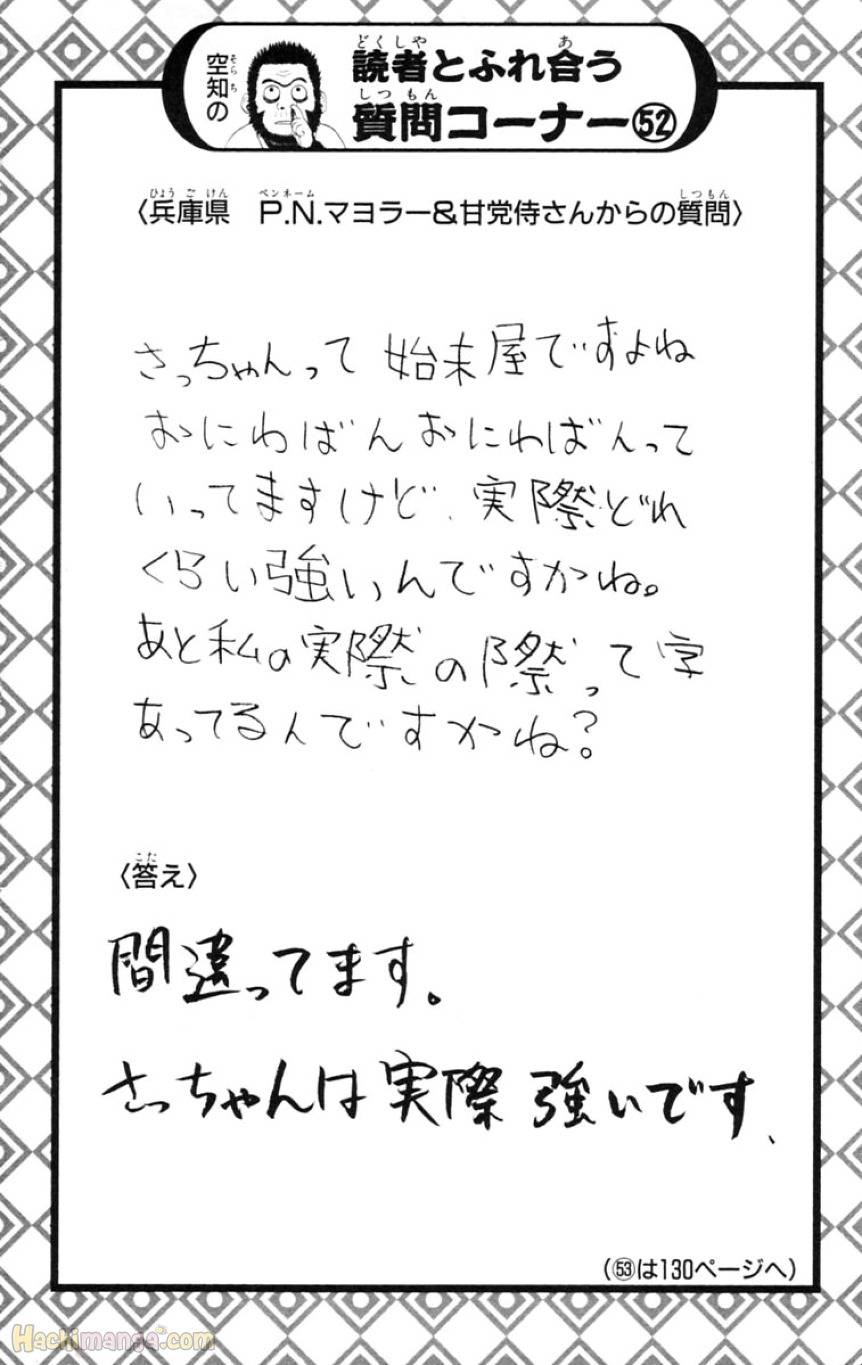 空知の
読者とふれ合う
質問コーナー㊾
〈兵庫県　P.N.マヨラー&甘党侍さんからの質問〉
さっちゃんって 始末屋ですよね
おにわばんおにわばんって
いってますけど、実際どれ
くらい強いんですかね。
あと私の実際の際って字
あってるんですかね?
〈答え〉
間違ってます。
さっちゃんは実際 強いです、
(㊼は130ページへ)
Hachimanga.com